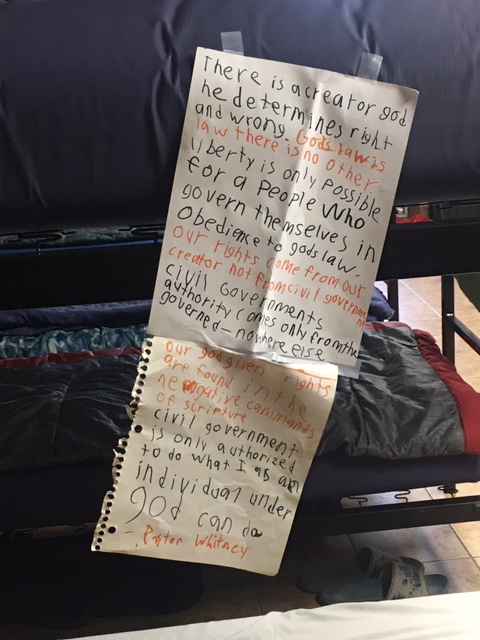 There is a creator god
he determines right
and wrong. Gods law is
law there is no other
liberty is only possible
for a people who
govern themselves in
obedience to gods law.
our rights come from our
creator not from civil government
civil governments
authority comes only from the
governed - nowhere else
our god given rights
are found in the
negative commands
of scripture
civil government
is only authorized
to do what I as an
individual under
god can do
- Pastor Whitney